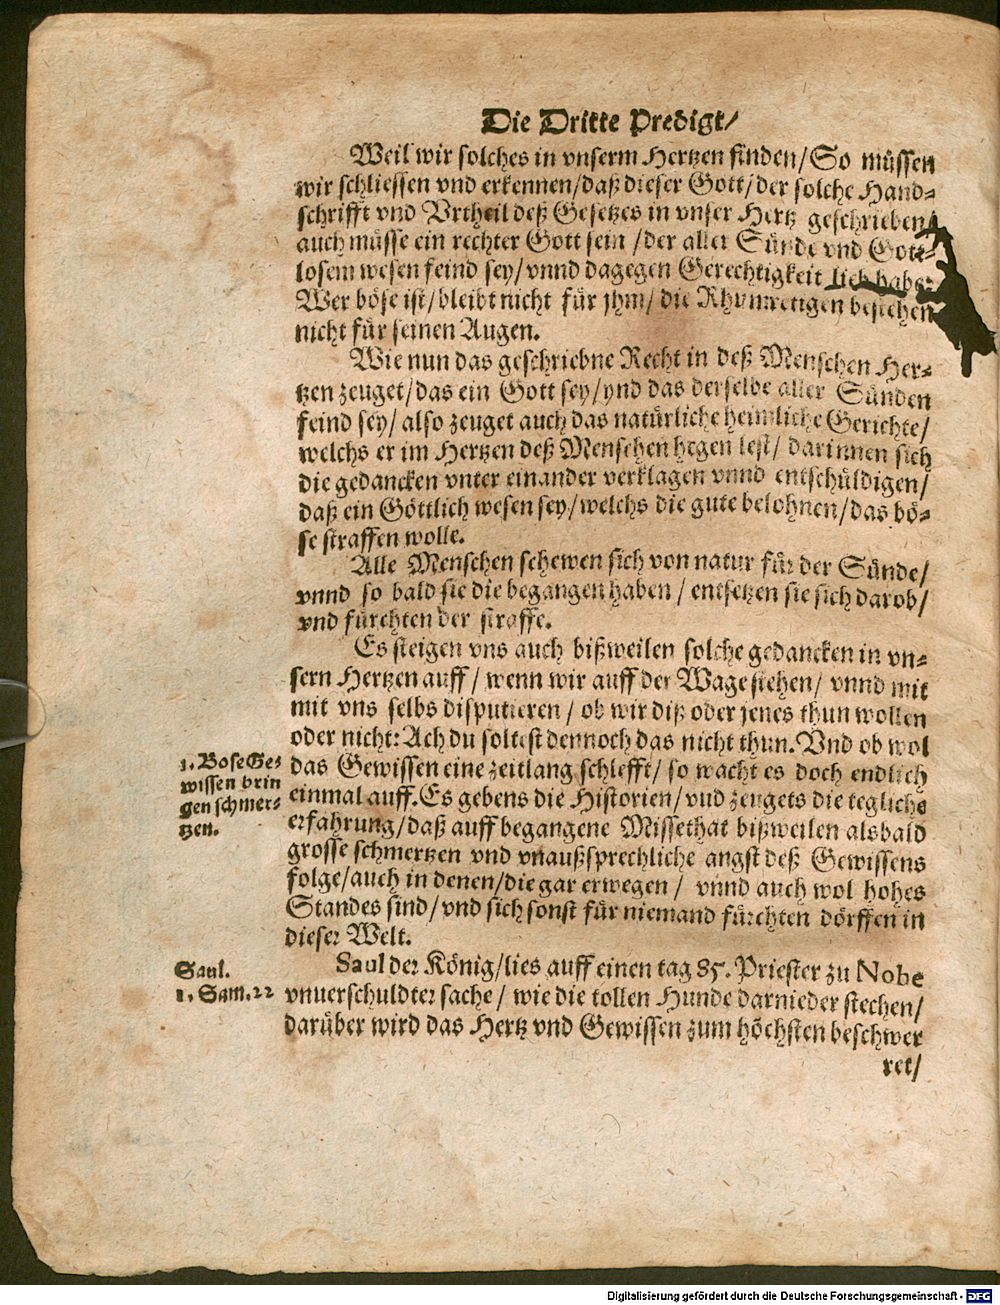 Die Dritte Predigt/
Weil wir solches in vnserm Hertzen finden/So müssen
wir schliessen vnd erkennen/daß dieser Gott/der solche Hand-
schrifft vnd Vrtheil deß Gesetzes in vnser Hertz geschrieben/
auch müsse ein rechter Gott sein /der aller Sünde vnd Gott-
losem wesen feind sey/vnnd dagegen Gerechtigkeit lieb habe:
Wer böse ist/bleibt nicht für jhm/die Rhumretigen bestehen
nicht für seinen Augen.
Wie nun das geschriebne Recht in deß Menschen Her-
tzen zeuget/das ein Gott sey/vnd das derselbe aller Sünden
feind sey/also zeuget auch das natürliche heimliche Gerichte/
welchs er im Hertzen deß Menschen hegen lest/ darinnen sich
die gedancken vnter einander verklagen vnnd entschüldigen/
daß ein Göttlich wesen sey/welchs die gute belohnen/das bö-
se straffen wolle.
Alle Menschen schewen sich von natur für der Sünde/
vnnd so bald sie die begangen haben / entsetzen sie sich darob/
vnd fürchten der straffe.
Es steigen vns auch bißweilen solche gedancken in vn-
sern Hertzen auff / wenn wir auff der Wage stehen/ vnnd mit
mit vns selbs disputieren / ob wir diß oder jenes thun wollen
oder nicht: Ach du soltest dennoch das nicht thun. Vnd ob wol
das Gewissen eine zeitlang schlefft/ so wacht es doch endlich
einmal auff. Es gebens die Historien/vnd zeugets die tegliche
erfahrung/daß auff begangene Missethat bißweilen alsbald
grosse schmertzen vnd vnaußsprechliche angst deß Gewissens
folge/auch in denen/die gar erwegen / vnnd auch wol hohes
Standes sind/vnd sich sonst für niemand fürchten dörffen in
dieser Welt.
1. Böse Ge-
wissen brin
gen schmer-
tzen.
Saul der König/lies auff einen tag 85. Priester zu Nobe
vnuerschuldter sache / wie die tollen Hunde darnieder stechen/
darüber wird das Hertz vnd Gewissen zum höchsten beschwer
ret/
Saul.
1. Sam. 22
Digitalisierung gefördert durch die Deutsche Forschungsgemeinschaft - DFG